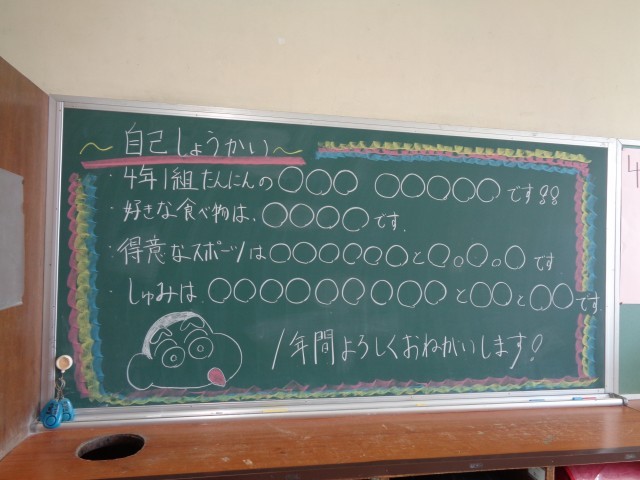 ～自己しょうかい～
・4年1組たんにんの○○○ ○○○○○です!!
・好きな食べ物は、○○○○です.
・得意なスポーツは○○○○○○と○。○。○です
・しゅみは、○○○○○○○○○と○○と○○です
1年間よろしくおねがいします!
4